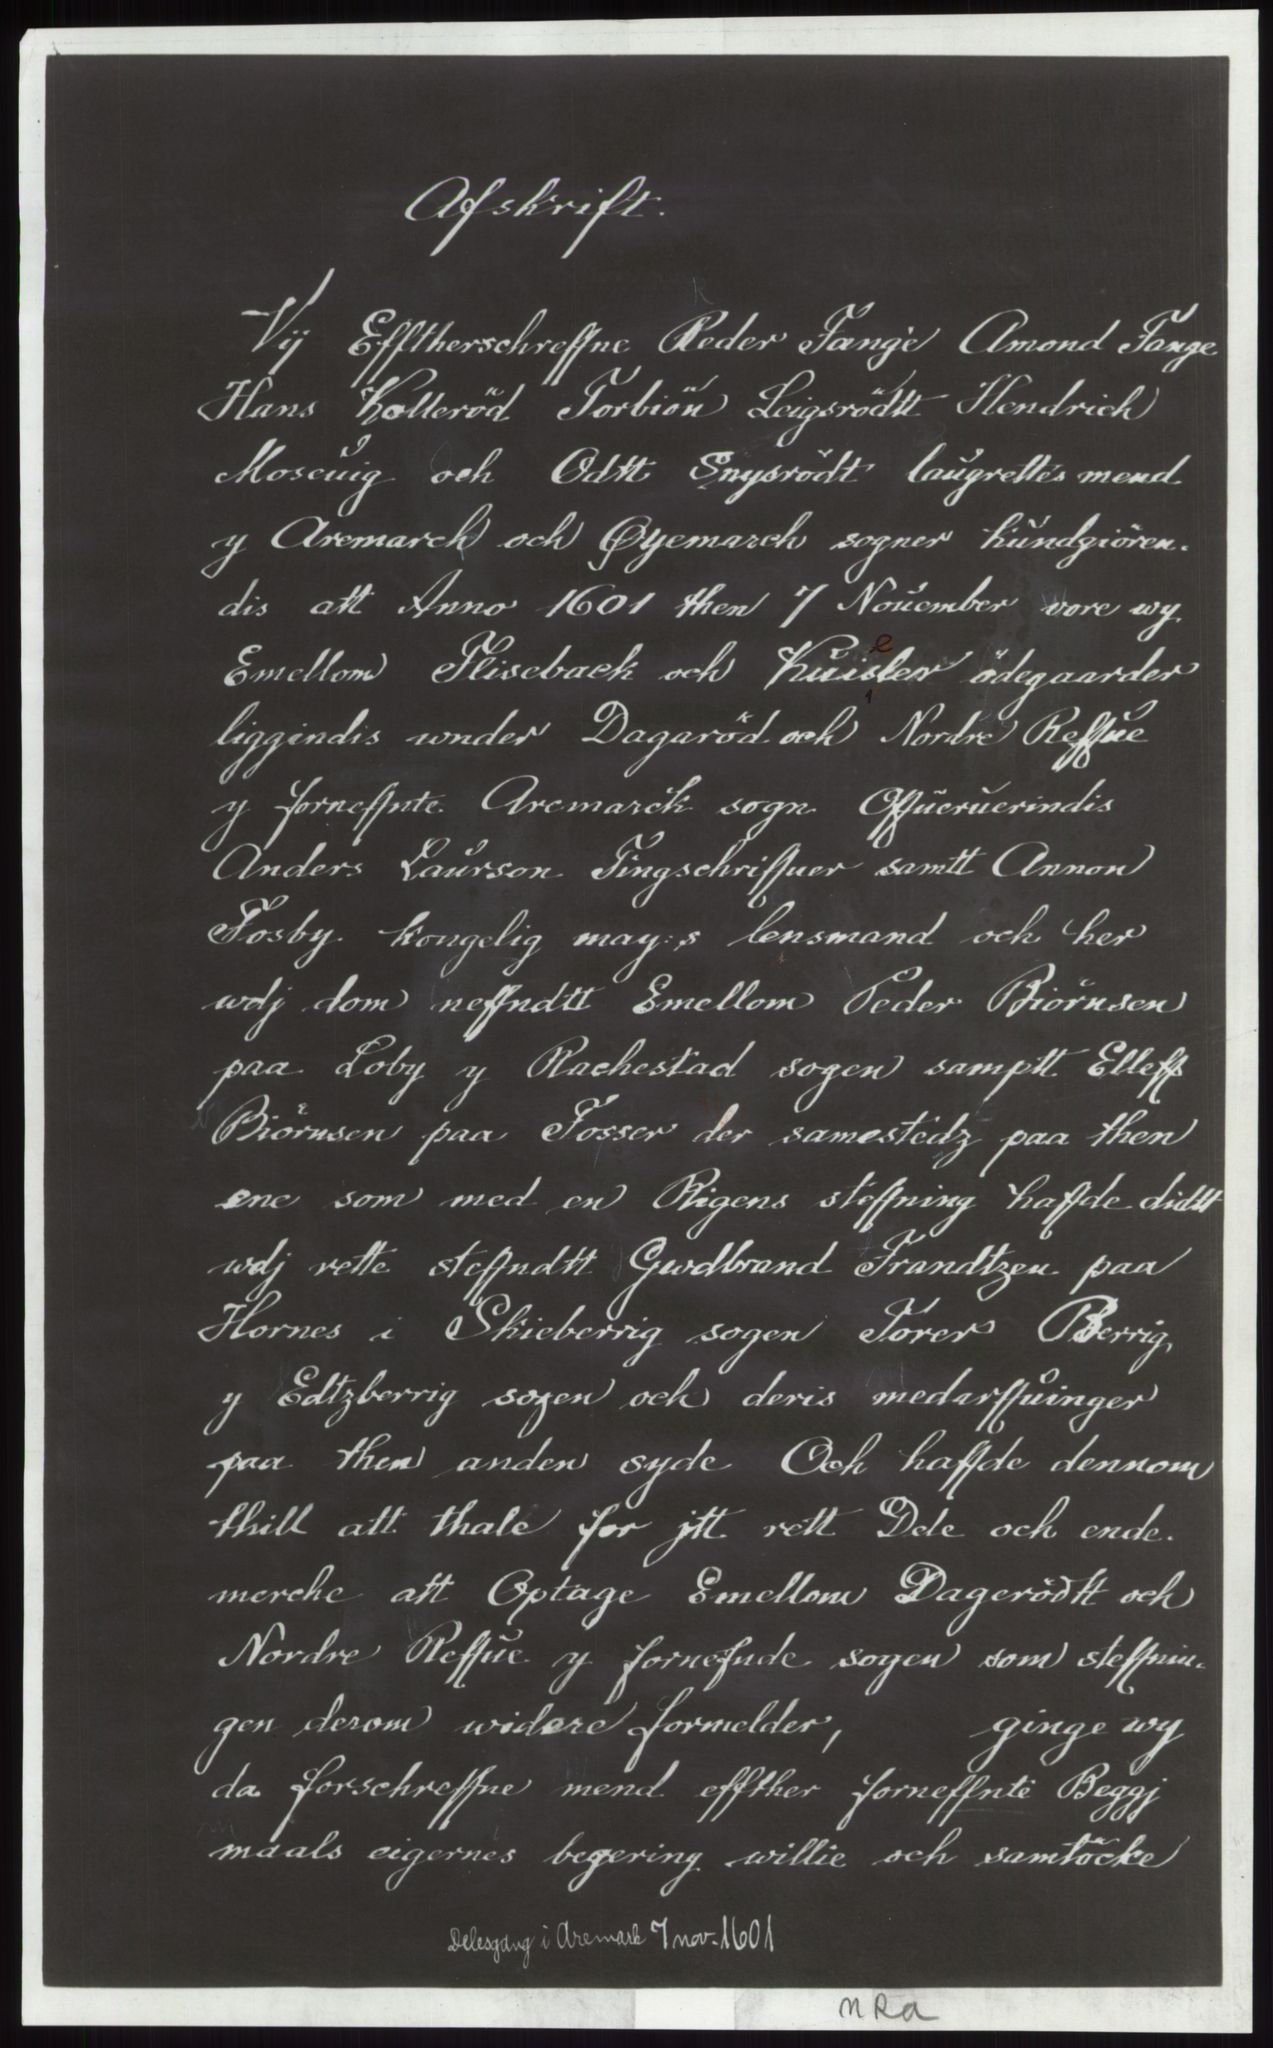 Afskrift.
Vij Efftherschreffne Peder Tange Amond Tange
Hans Kolleröd Torbiön Leigsrödtt Hendrich
Moseuig och Odtt Snysrödt laugrettes mend
y Aremarch och Øyemarch sogner kundgiören-
dis att Anno 1601 then 7 Nouember vore wy
Emellom Fliseback och Kuisler ödegaarder
liggindis wnder Dagaröd och Nordre Reffue
y forneffnte Aremarck sogn Offueruerindis
Anders Laurson Tingschriffuer samtt Annon
Fosby kongelig may:s lensmand och her
wdj dom neffndtt Emellom Peder Biörnsen
paa Loby y Rachestad sogen samptt Elleff
Biörnsen paa Fosser der samestedz paa then
ene som med en Rigens steffning haffde didtt
wdj rette steffndtt Gwdbrand Frandtzen paa
Hornes i Skieberrig sogen Torer Berrig
y Edtzberrig sogen och deris medarffuinger
paa then anden syde Och haffde dennom
thill att thale for jtt rett Dele och ende-
merche att Optage Emellom Dagerödtt och
Nordre Reffue y fornefnde sogen som steffnin-
gen derom widere formelder, ginge wy
da forschreffne mend effther forneffnte Beggj
maals eigernes begering willie och samtöcke
Delesgang i Aremark 7 nov. 1601
NRA